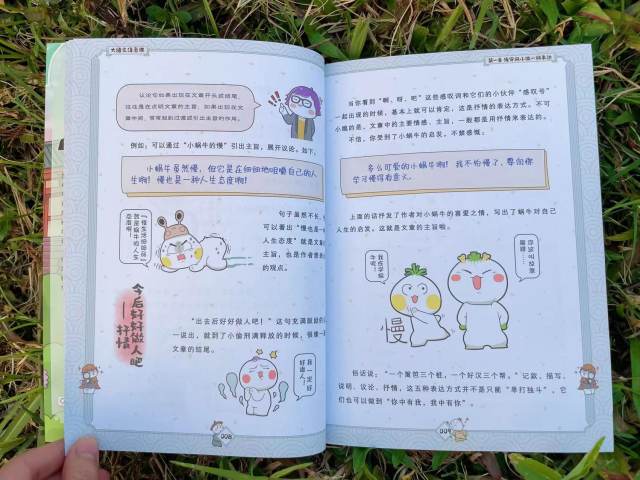 大语文注意课
议论句如果出现在文章开头或结尾，
往往是在点明文章的主旨，如果出现在文
章中间，常常起到过渡或引出主旨的作用。
例如，可以通过“小蜗牛的慢”引出主旨，展开议论。如下，
小蜗牛虽然慢，但它是在细细地咀嚼自己的人
生啊！慢也是一种人生态度啊！
句子虽然不长，
看到了“慢也是一
人生态度”就是文章
主旨，也是作者表
的观点。
今后好好做人吧
——抒情
“出去后好好做人吧！”这句充满鼓励的
一说出，就到了小偷刑满释放的时候，很像一
文章的结尾。
我一定好
好做人！
008
当你看到“啊、呀、吧”这些感叹词和它们的小伙伴“感叹号”
一起出现的时候，基本上就可以肯定，这是抒情的表达方式。不可
小瞧的是，文章中的主要情感、主旨，一般都是用抒情来表达的。
不信，你受到了小蜗牛的启发，不禁感慨：
多么可爱的小蜗牛啊！我不怕慢了，要向你
学习慢得有意义。
上面的话抒发了作者对小蜗牛的喜爱之情，写出了蜗牛对自己
人生的启发。这就是文章的主旨啦。
我在学蜗
牛呢！
你这叫故意
慢
俗话说：“一个篱笆三个桩，一个好汉三个帮。”记叙、描写、
说明、议论、抒情，这五种表达方式并不是只能“单打独斗”，它
们也可以做到“你中有我，我中有你”。
009